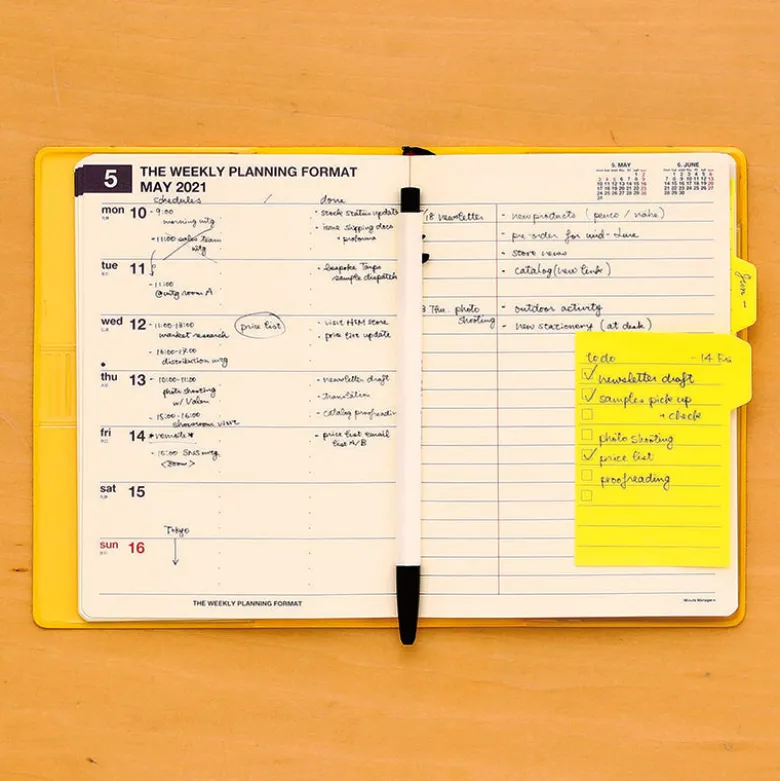 5
THE WEEKLY PLANNING FORMAT
MAY 2021
schedules / done
mon 10
- 9:00
morning mtg
- 11:00 sales team
mtg
- stock status update
- issue shipping docs
+ proforma
tue 11
- 11:00
@mtg room A
- bespoke
sample dispatch
wed 12
- 11:00-13:00
market research
price list
- 16:00-17:00
distribution mtg
- visit H&M store
- price list update
thu 13
- 10:00-11:00
photo shooting
w/
- 15:00-16:00
showroom visit
- newsletter draft
- translation
- catalog proofreadin
fri 14
*remote*
- 15:00 SNS mtg
<zoom>
- price list email
list A/B
sat 15
Tokyo
sun 16
THE WEEKLY PLANNING FORMAT
5. MAY
6. JUNE
/18 newsletter
- new products (penco / nahe)
- pre-order for mid-June
- store news
- catalog (new link)
Thu. photo
shooting
- outdoor activity
- new stationery (at desk)
Jun -
to do - 14 Fri
newsletter draft
samples pick up
+ check
photo shooting
price list
proofreading